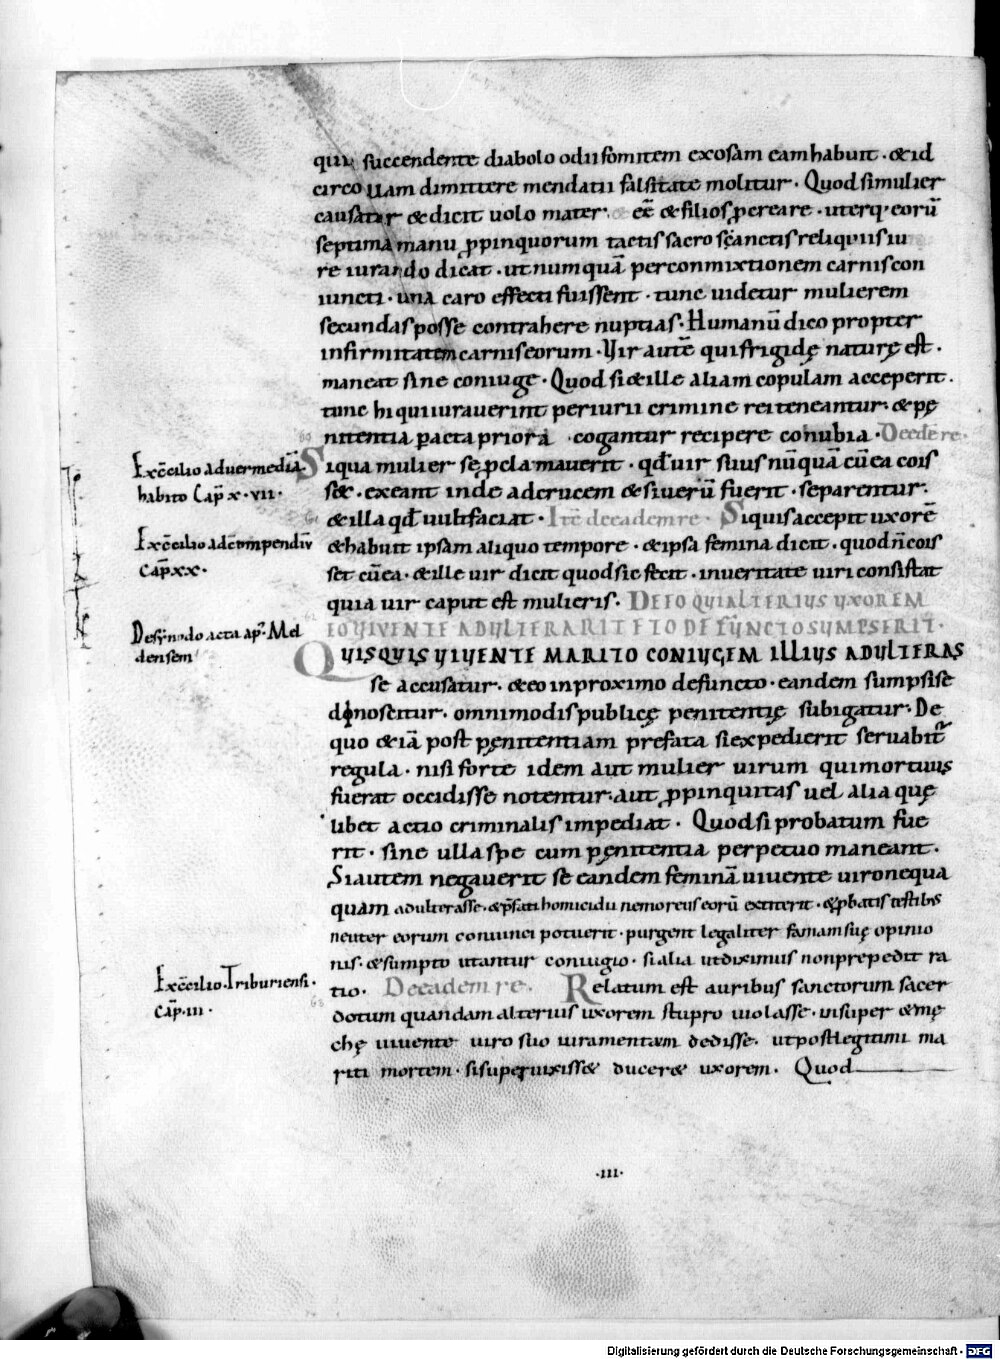 qui succendente diabolo odii fomitem exosam eam habuit · & id
circo uiam dimittere mendatii falsitate molitur · Quod si mulier
causatur & dicit uolo mater eē & filios ꝓcreare · uterq· eorū
septima manu ꝓpinquorum tactis sacro scānctis reliquiis iu
re iurando dicat · ut numquā per conmixtionem carnis con
iuncti · una caro effecti fuissent · tunc uidetur mulierem
secundas posse contrahere nuptias · Humanū dico propter
infirmitatem carnis eorum · Vir autē qui frigidę naturę est ·
maneat sine coniuge · Quod si & ille aliam copulam acceperit ·
tunc hi qui iurauerint periurii crimine rei teneantur · & pę
nitentia peracta priora cogantur recipere conubia · De ead̄e re ·
Ex c̄cilio ad uermediā · Siqua mulier se ꝓclamauerit · qđ uir suus nūquā cū ea cois
habito Cap̄ x · vii · s& · exeant inde ad crucem & si uerū fuerit · separentur ·
& illa qđ uult faciat · Itē de eadem re · Siquis accepit uxorē
Ex c̄cilio ad cōmpendiū & habuit ipsam aliquo tempore · & ipsa femina dicit · quod n̄ cois
Cap̄ xx · set cū ea · & ille uir dicit quod sic fecit · in ueritate uiri consistat
quia uir caput est mulieris · DE EO QUI ALTERIUS UXOREM
De synodo acta ap̄ Mel EO VIVENTE ADULTERARIT ET EO DEFUNCTO SUMPSERIT ·
densem QUISQUIS VIVENTE MARITO CONIUGEM ILLIUS ADULTERAS
se accusatur · & eo in proximo defuncto · eandem sumpsisse
dinoscitur · omnimodis publicę penitentię subigatur · De
quo & iā post pęnitentiam prefata si expedierit seruabit̄
regula · nisi forte idem aut mulier uirum qui mortuus
fuerat occidisse notentur · aut ꝓpinquitas uel alia quę
libet actio criminalis impediat · Quod si probatum fue
rit · sine ulla spe cum pęnitentia perpetuo maneant ·
Si autem negauerit se eandem feminā uiuente uiro nequa
quam adulterasse · & p̄fati homicidii nemo reus eorū extiterit · & ꝓbatis testibus
neuter eorum conuinci potuerit · purgent legaliter famam suę opinio
nis · & sumpto utantur coniugio · si alia ut diximus non prepedit ra
Ex c̄cilio Triburiensi · tio · De eadem re · Relatum est auribus sanctorum sacer
Cap̄ · iii · dotum quandam alterius uxorem stupro uiolasse · insuper & mę
chę uiuente uiro suo iuramentum dedisse · ut post legitimi ma
riti mortem · si superuixiss& ducer& uxorem · Quod
· iii ·
Digitalisierung gefördert durch die Deutsche Forschungsgemeinschaft · DFG